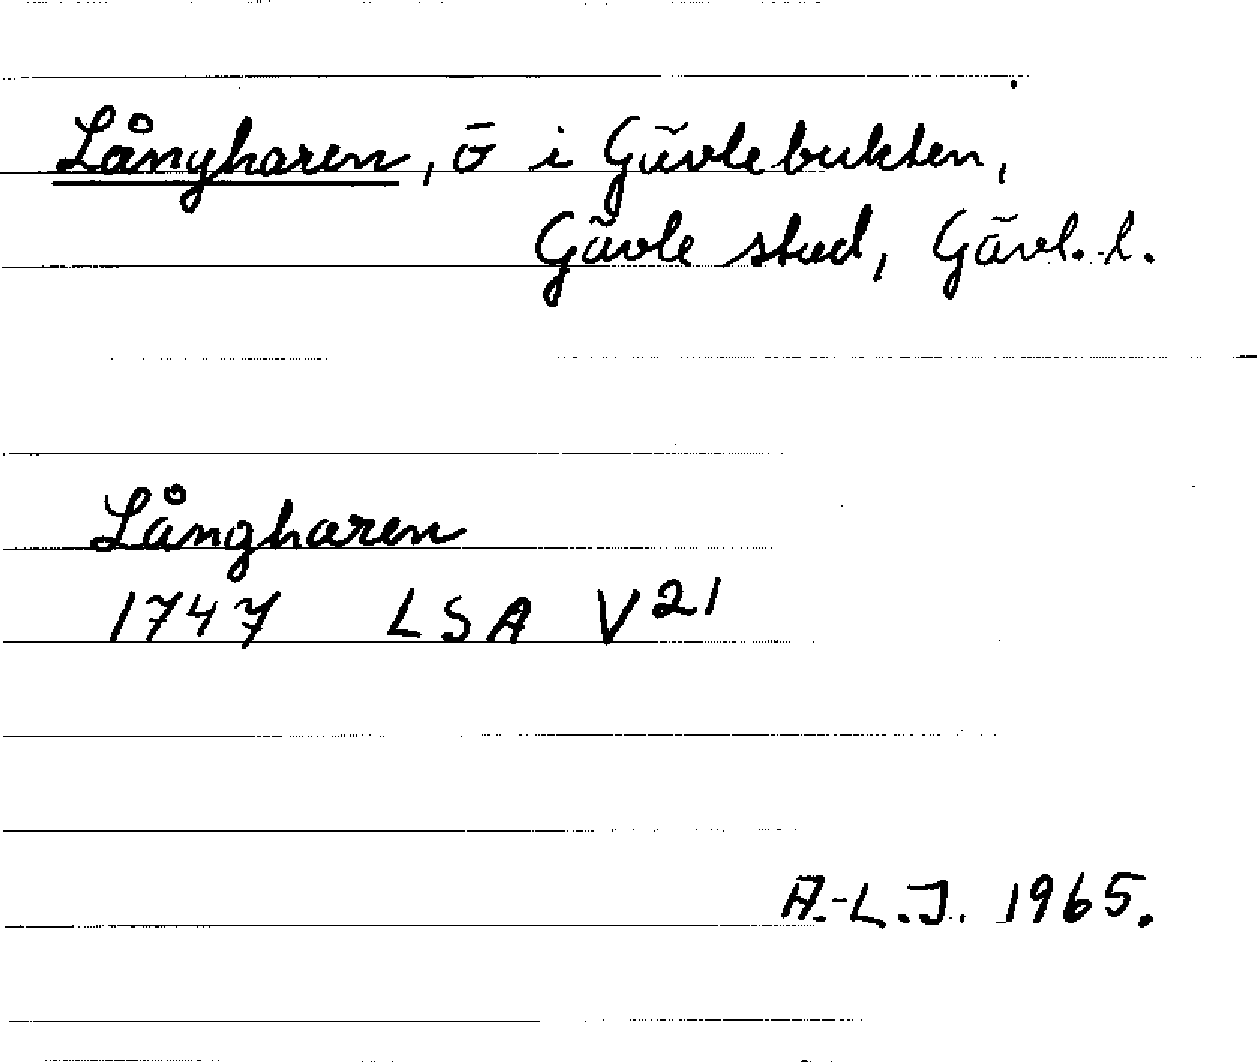 Långharen, ö i Gävlebukten,
Gävle stad, Gävl. l.
Långharen
1747 LSA V²¹
A.-L.J. 1965.